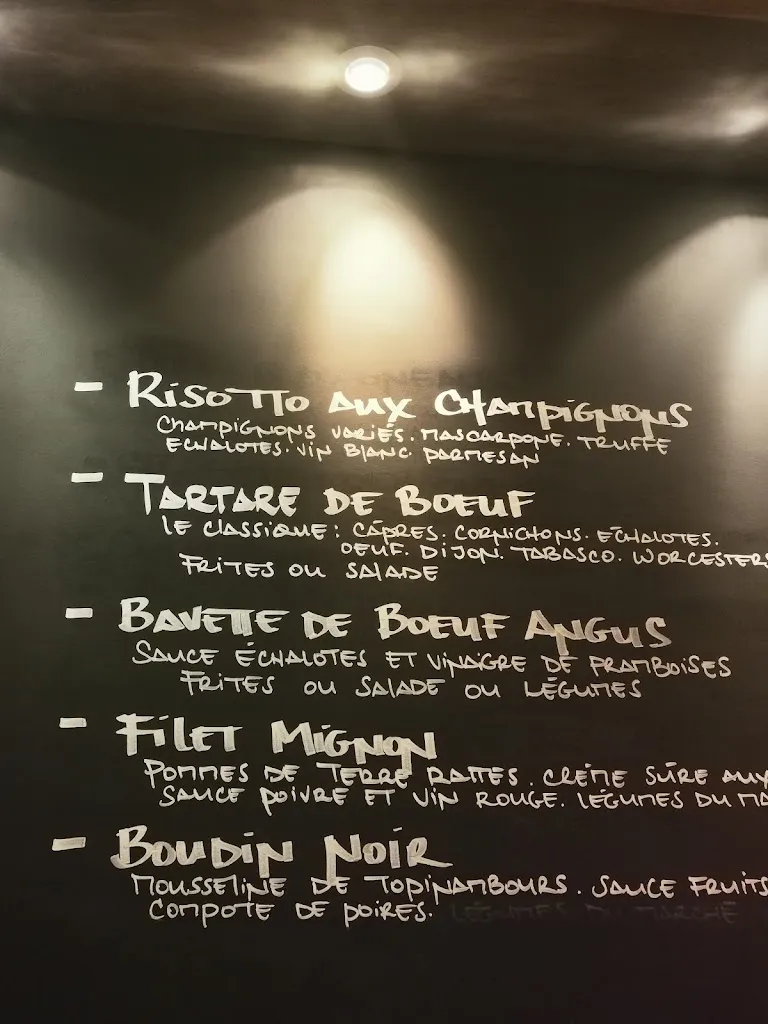 - Risotto aux Champignons
Champignons variés. Mascarpone. Truffe
Échalotes. Vin blanc. Parmesan
- Tartare de Boeuf
Le classique: Câpres. Cornichons. Échalotes.
Oeuf. Dijon. Tabasco. Worcesters
Frites ou salade
- Bavette de Boeuf Angus
Sauce échalotes et vinaigre de framboises
Frites ou salade ou légumes
- Filet Mignon
Pommes de terre rattes. Crème sûre aux
Sauce poivre et vin rouge. Légumes du ma
- Boudin Noir
Mousseline de topinambours. Sauce fruits
Compote de poires. Légumes du marché